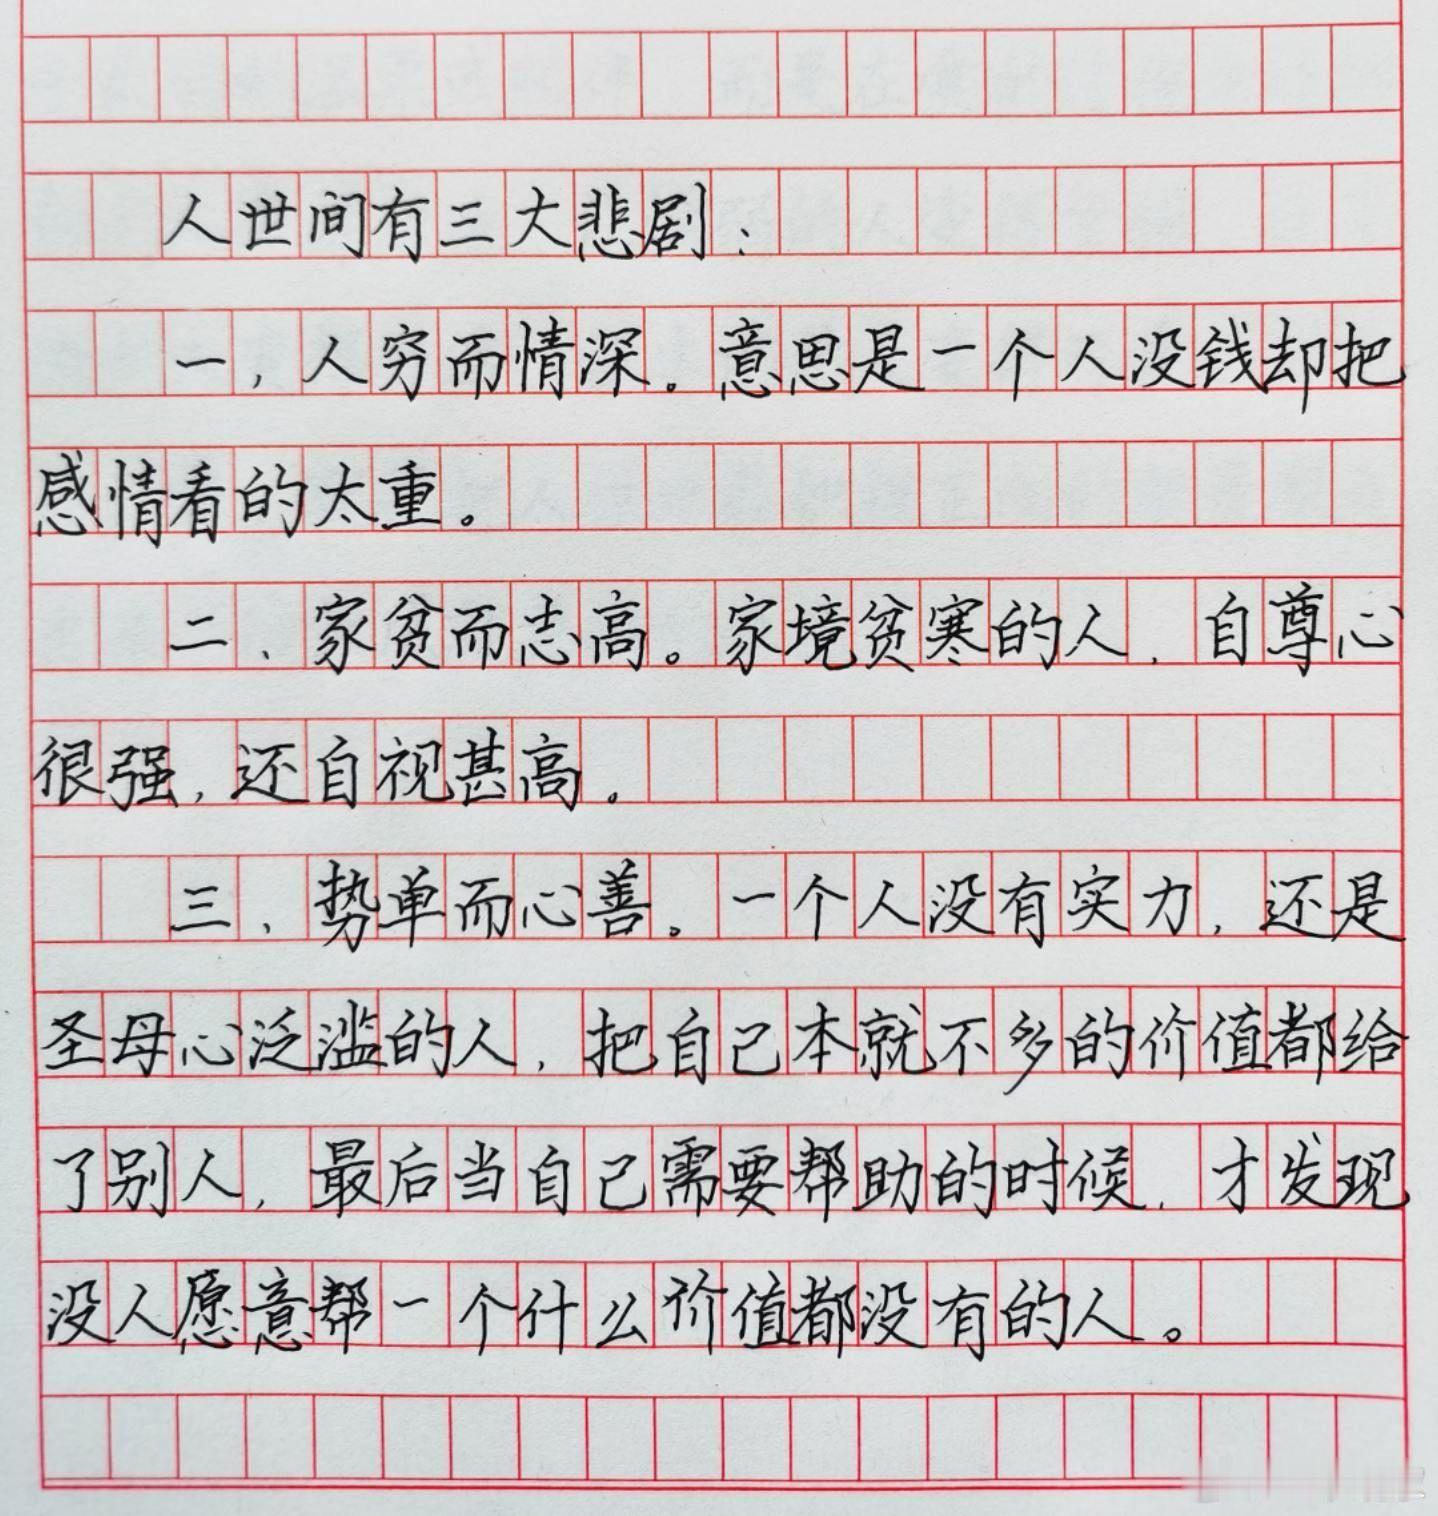 人世间有三大悲剧：
一，人穷而情深。意思是一个人没钱却把
感情看的太重。
二、家贫而志高。家境贫寒的人，自尊心
很强，还自视甚高。
三、势单而心善。一个人没有实力，还是
圣母心泛滥的人，把自己本就不多的价值都给
了别人，最后当自己需要帮助的时候，才发现
没人愿意帮一个什么价值都没有的人。